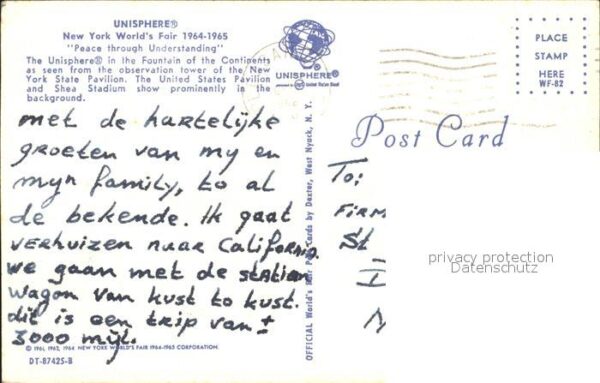 UNISPHERE®
New York World's Fair 1964-1965
"Peace through Understanding"
The Unisphere® in the Fountain of the Continents
as seen from the observation tower of the New
York State Pavilion. The United States Pavilion
and Shea Stadium show prominently in the
background.
met de hartelijke
groeten van my en
myn family, to al
de bekende. Ik gaat
verhuizen naar California.
we gaan met de station
wagon van kust to kust.
dit is een trip van ±
3000 myl.
© 1961, 1962, 1964 NEW YORK WORLD'S FAIR 1964-1965 CORPORATION.
DT-87425-B
UNISPHERE®
presented by USS United States Steel
OFFICIAL World's Fair Post Cards by Dexter, West Nyack, N. Y.
PLACE
STAMP
HERE
WF-82
Post Card
To:
FIRM
St
privacy protection
Datenschutz